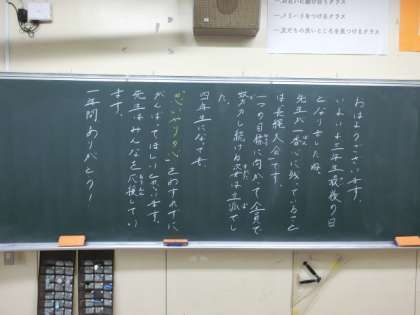 一、メリハリをつけるクラス
一、友だちの良いところを見つけるクラス
おはようございます。
いよいよ三年生最後の日
となりましたね。
先生が一番心に残っていること
は長縄大会です。
一つの目標に向かって全員で
努力し続ける姿は立派でし
た。
四年生になっても
思いやりの心をわすれずに、
がんばってほしいと思います。
先生はみんなを応援してい
ます。
一年間ありがとう！